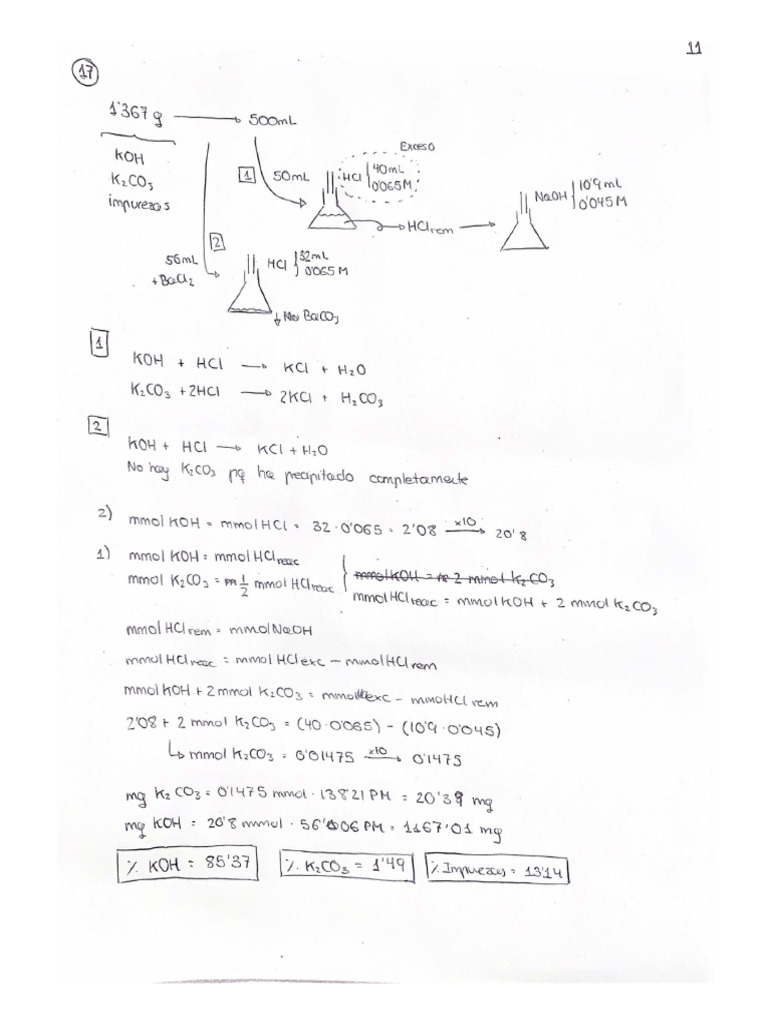 11
17
1'367 g → 500mL
KOH
K₂CO₃
impurezas
1 50mL
Exceso
HCl 40mL
0'065M
HClrem
NaOH 10'9 mL
0'045 M
2
56mL
+ BaCl₂
HCl 32mL
0'065 M
↓ BaCO₃
1
KOH + HCl → KCl + H₂O
K₂CO₃ + 2HCl → 2KCl + H₂CO₃
2
KOH + HCl → KCl + H₂O
No hay K₂CO₃ pq ha precipitado completamente
2) mmol KOH = mmol HCl = 32 · 0'065 = 2'08 ×10 → 20'8
1) mmol KOH = mmol HClreac
mmol K₂CO₃ = 1/2 mmol HClreac
mmol KOH = 2 mmol K₂CO₃
mmol HClreac = mmol KOH + 2 mmol K₂CO₃
mmol HClrem = mmol NaOH
mmol HClreac = mmol HClexc − mmol HClrem
mmol KOH + 2 mmol K₂CO₃ = mmolexc − mmoHClrem
2'08 + 2 mmol K₂CO₃ = (40 · 0'065) − (10'9 · 0'045)
↳ mmol K₂CO₃ = 0'01475 ×10 → 0'1475
mg K₂CO₃ = 0'1475 mmol · 13821 PM = 20'39 mg
mg KOH = 20'8 mmol · 56'006 PM = 1167'01 mg
% KOH = 85'37 % K₂CO₃ = 1'49 % Impurezas = 13'14